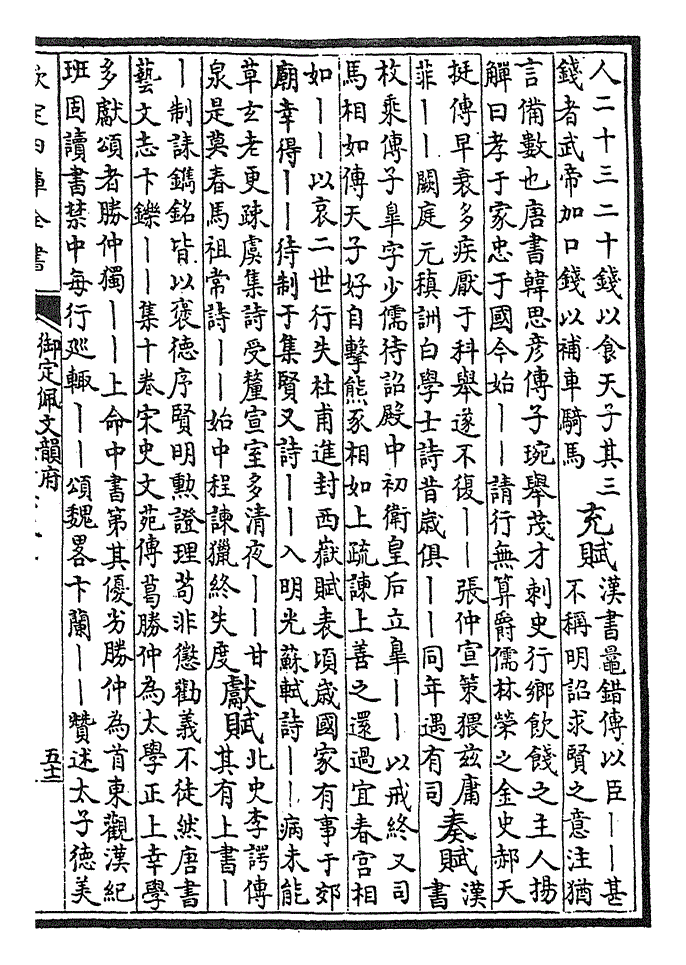 人二十三二十錢以食天子其三
錢者武帝加口錢以補車騎馬
充賦
漢書鼂錯傳以臣——甚
不稱明詔求賢之意注猶
言備數也唐書韓思彥傳子琬舉茂才刺史行鄉飲餞之主人揚
觶曰孝于家忠于國今始——請行無算爵儒林榮之金史郝天
挺傳早衰多疾厭于科舉遂不復——張仲宣策猥茲庸
菲——闕庭元稹詶白學士詩昔歲俱——同年遇有司
奏賦
漢
書
枚乘傳子皐字少孺待詔殿中初衛皇后立皐——以戒終又司
馬相如傳天子好自擊熊豕相如上疏諫上善之還過宜春宮相
如——以哀二世行失杜甫進封西嶽賦表頃歲國家有事于郊
廟幸得——待制于集賢又詩——入明光蘇軾詩——病未能
草玄老更疎虞集詩受釐宣室多清夜——甘
泉是莫春馬祖常詩——始中程諫獵終失度
獻賦
北史李諤傳
其有上書—
—制誄鐫銘皆以褒德序賢明勲證理苟非懲勸義不徒然唐書
藝文志卞鑠——集十卷宋史文苑傳葛勝仲為太學正上幸學
多獻頌者勝仲獨——上命中書第其優劣勝仲為首東觀漢紀
班固讀書禁中每行廵輙——頌魏畧卞蘭——贊述太子德美
欽定四庫全書
御定佩文韻府
五十二